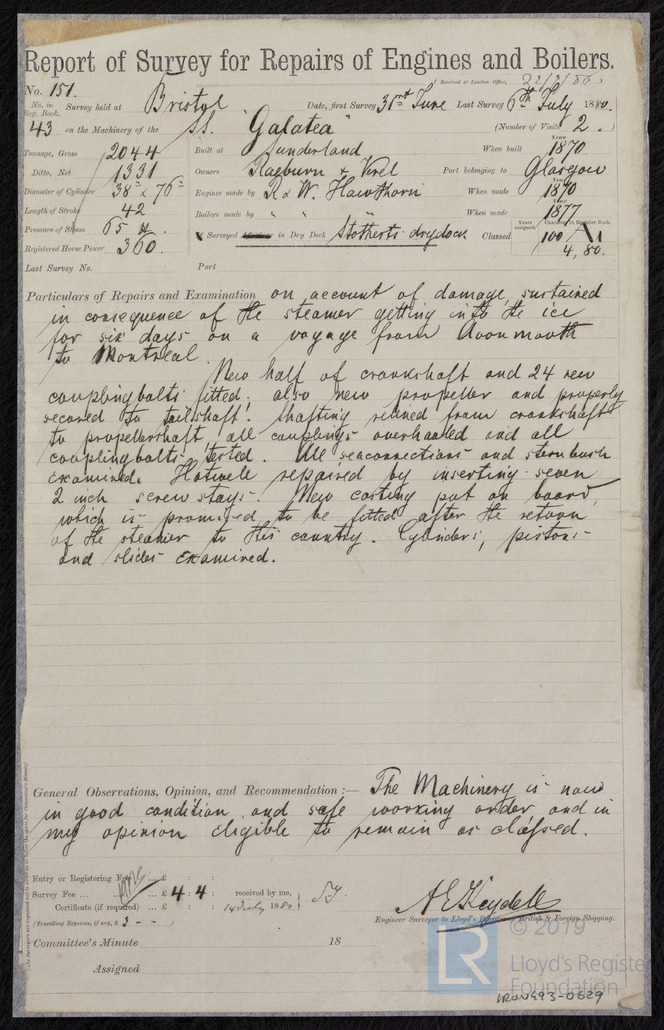 Report of Survey for Repairs of Engines and Boilers.
Received at London Office, 22/7/80
No. 151.
No. in Reg. Book. Survey held at Bristol Date, first Survey 31st June Last Survey 6th July 1880.
43 on the Machinery of the SS. "Galatea" (Number of Visits 2.)
Tonnage, Gross 2044 Built at Sunderland When built Year 1870
Ditto, Net 1331 Owners Raeburn & Verel Port belonging to Glasgow
Diameter of Cylinder 38" x 76" Engines made by R & W. Hawthorn When made 1870
Length of Stroke 42 Boilers made by " " " When made Year 1877
Pressure of Steam 65 lb. X Surveyed in Dry Dock Stotherts drydock Classed Years assigned 100 A1
Registered Horse Power 360. 4,80.
Last Survey No. Port
Particulars of Repairs and Examination on account of damage, sustained
in consequence of the steamer getting into the ice
for six days on a voyage from Avonmouth
to Montreal.
New half of crankshaft and 24 new
couplingbolts fitted; also new propeller and properly
secured to tailshaft. Shafting relined from crankshaft
to propellershaft, all couplings overhauled and all
couplingbolts tested. All seaconnections and sternbush
examined. Hotwell repaired by inserting seven
2 inch screw stays. New casting put on board,
which is promised to be fitted after the return
of the steamer to this country. Cylinders, pistons
and slides examined.
General Observations, Opinion, and Recommendation :— The Machinery is now
in good condition and safe working order and in
my opinion eligible to remain as classed.
Entry or Registering Fee ... £ : :
Survey Fee ... £ 4 : 4 : received by me,
Certificate (if required) ... £ : : 14 July 1880
(Travelling Expenses, if any, £ 3 - - )
A E Keydell
Engineer Surveyor to Lloyd's Register of British & Foreign Shipping.
Committee's Minute 18
Assigned
LR © 2019
Lloyd's Register
Foundation
IRON493-0629